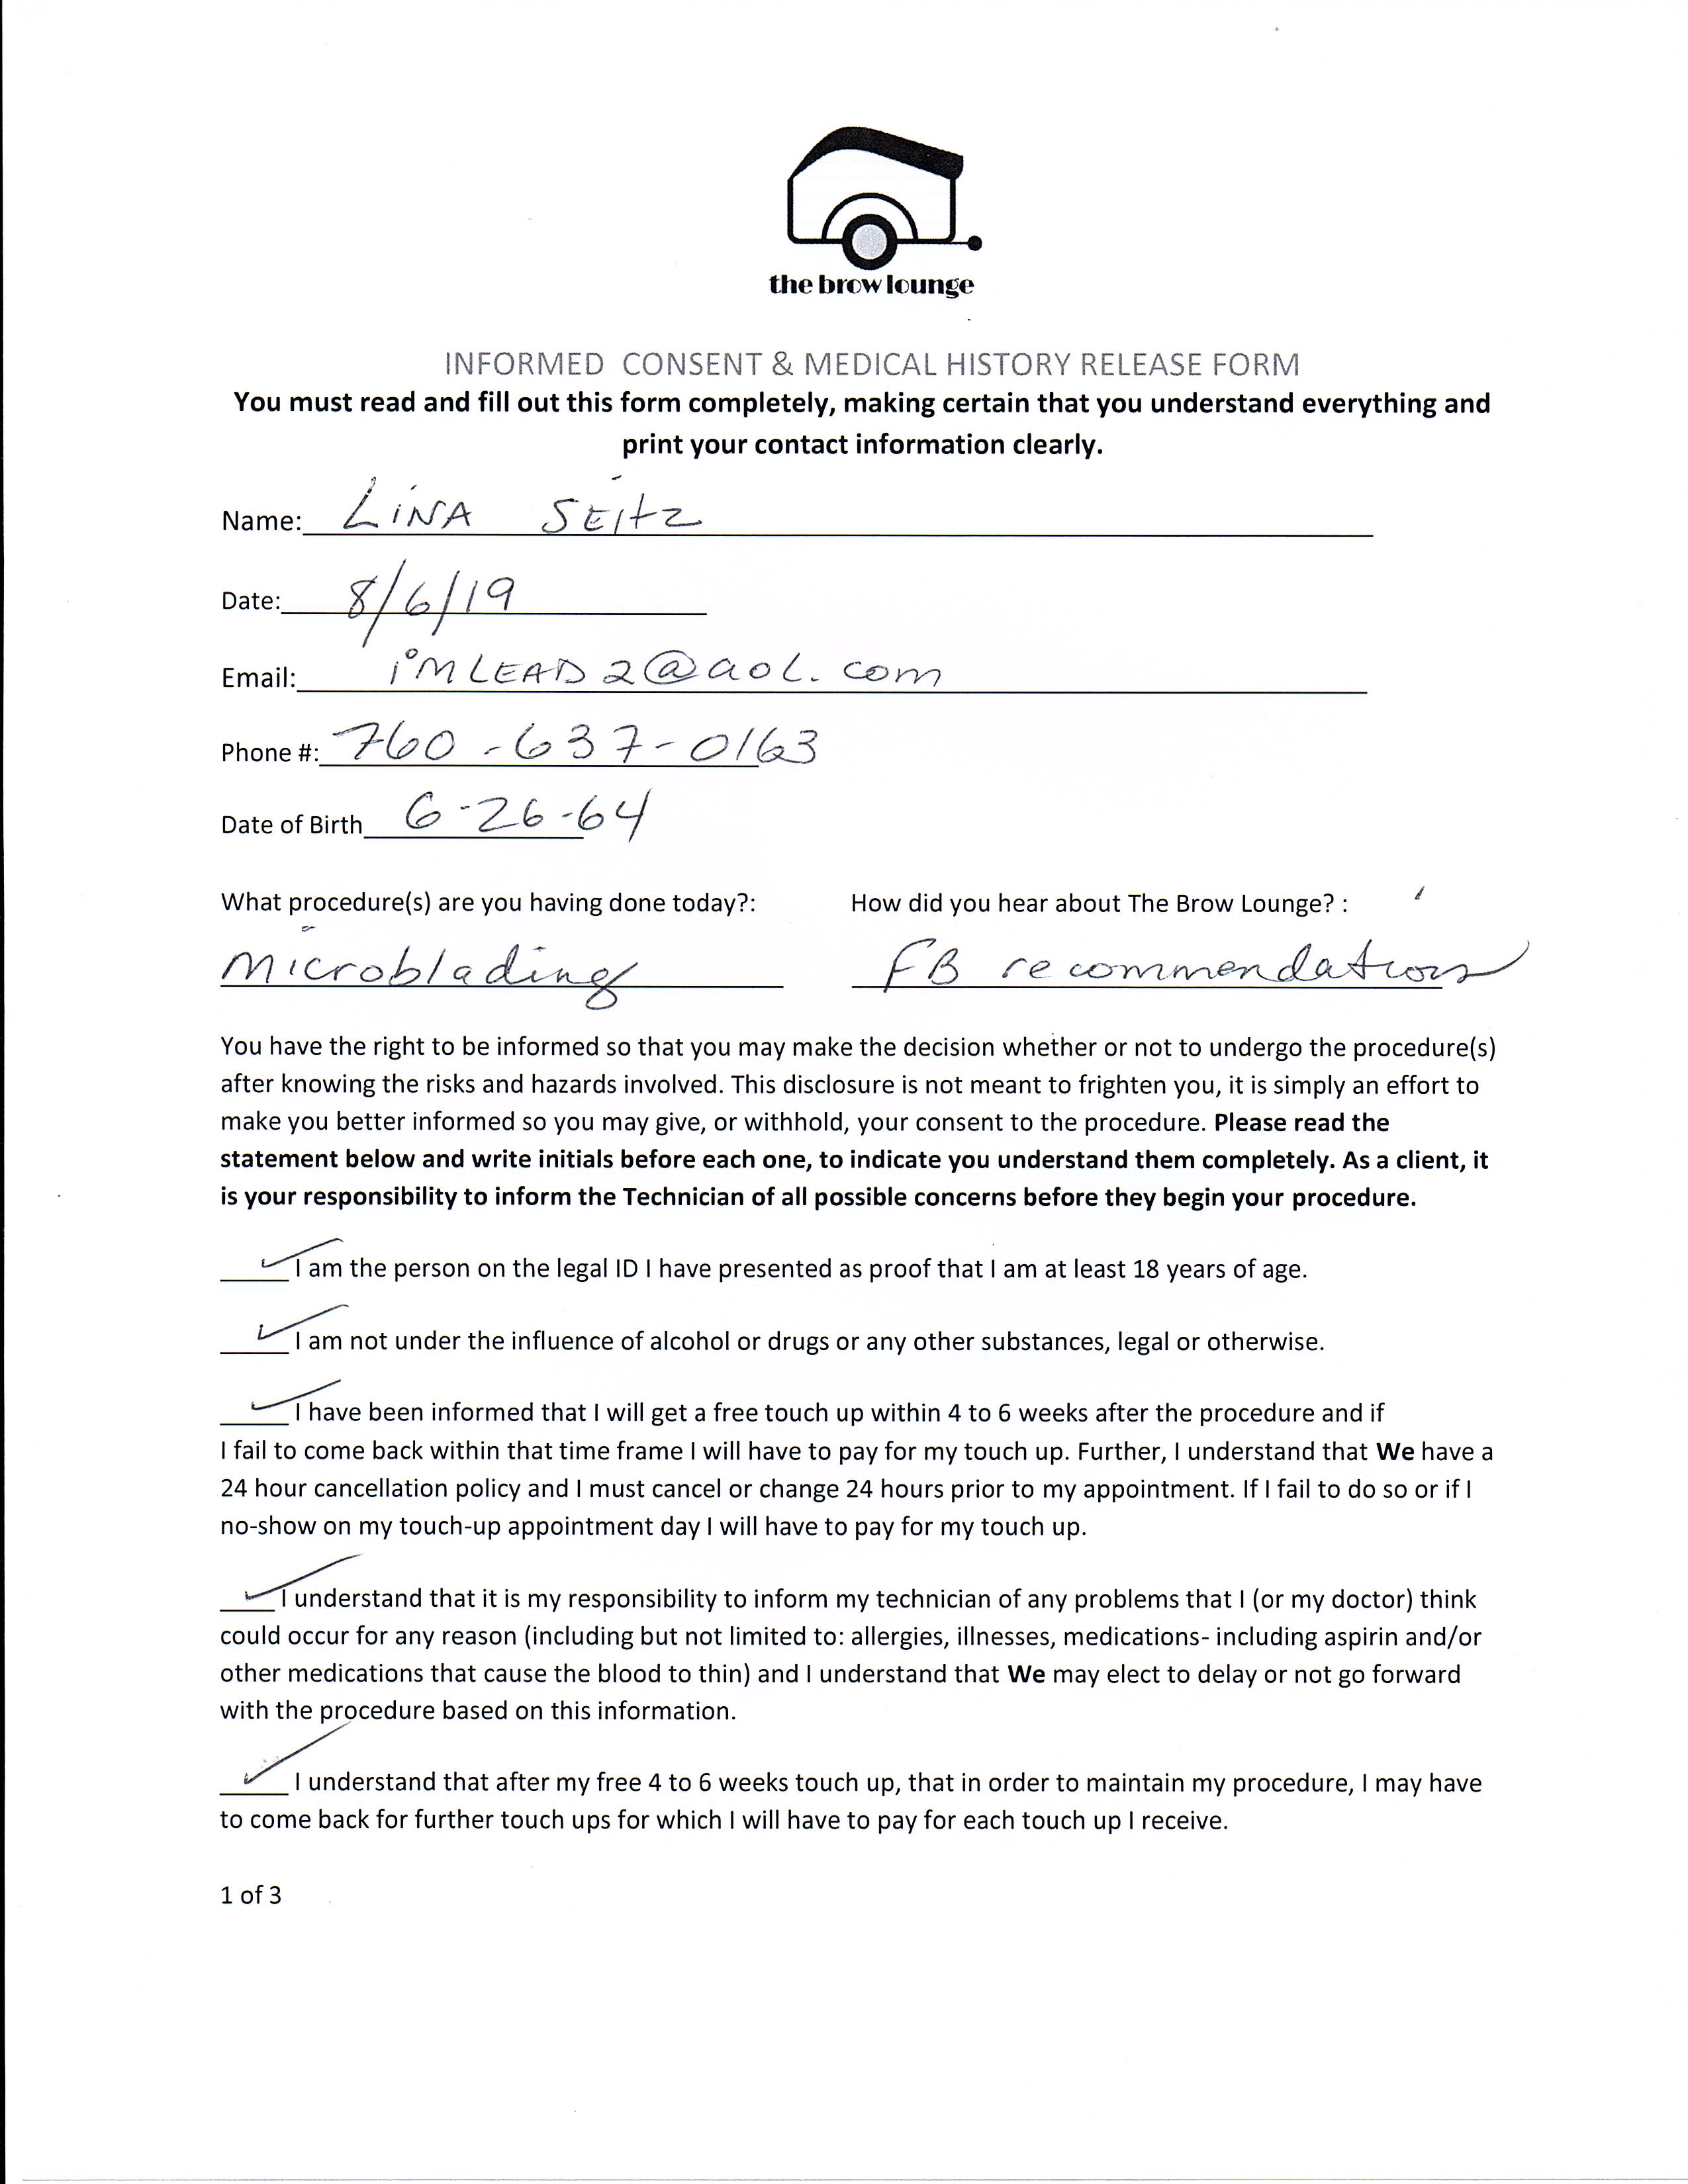 the brow lounge
INFORMED CONSENT & MEDICAL HISTORY RELEASE FORM
You must read and fill out this form completely, making certain that you understand everything and
print your contact information clearly.
Name: LiNA SEitz
Date: 8/6/19
Email: iMLEAD2@aol.com
Phone #: 760-637-0163
Date of Birth 6-26-64
What procedure(s) are you having done today?: How did you hear about The Brow Lounge? :
Microblading FB recommendations
You have the right to be informed so that you may make the decision whether or not to undergo the procedure(s)
after knowing the risks and hazards involved. This disclosure is not meant to frighten you, it is simply an effort to
make you better informed so you may give, or withhold, your consent to the procedure. Please read the
statement below and write initials before each one, to indicate you understand them completely. As a client, it
is your responsibility to inform the Technician of all possible concerns before they begin your procedure.
✓ I am the person on the legal ID I have presented as proof that I am at least 18 years of age.
✓ I am not under the influence of alcohol or drugs or any other substances, legal or otherwise.
✓ I have been informed that I will get a free touch up within 4 to 6 weeks after the procedure and if
I fail to come back within that time frame I will have to pay for my touch up. Further, I understand that We have a
24 hour cancellation policy and I must cancel or change 24 hours prior to my appointment. If I fail to do so or if I
no-show on my touch-up appointment day I will have to pay for my touch up.
✓ I understand that it is my responsibility to inform my technician of any problems that I (or my doctor) think
could occur for any reason (including but not limited to: allergies, illnesses, medications- including aspirin and/or
other medications that cause the blood to thin) and I understand that We may elect to delay or not go forward
with the procedure based on this information.
✓ I understand that after my free 4 to 6 weeks touch up, that in order to maintain my procedure, I may have
to come back for further touch ups for which I will have to pay for each touch up I receive.
1 of 3